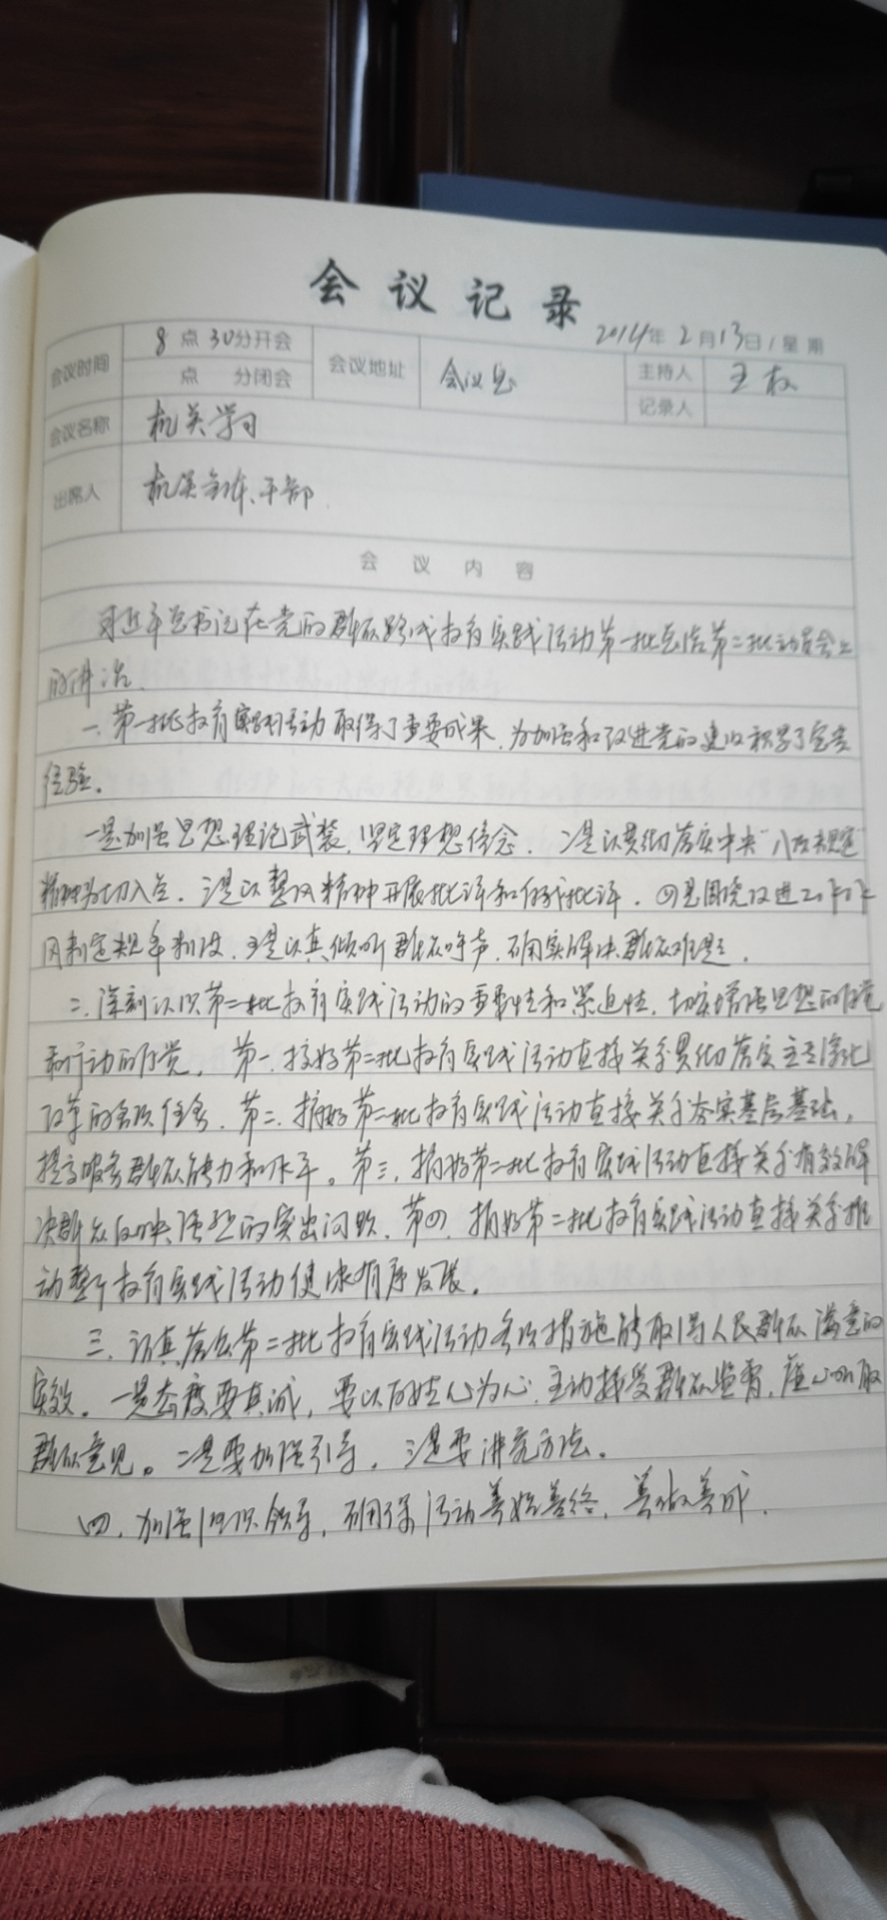 会议记录
2014年2月13日/星期
会议时间 8点30分开会 会议地址 会议室 主持人 王权
点 分闭会 记录人
会议名称 机关学习
出席人 机关全体干部
会议内容
习近平总书记在党的群众路线教育实践活动第一批总结第二批动员会上
的讲话.
一、第一批教育实践活动取得了重要成果,为加强和改进党的建设积累了宝贵
经验。
一是加强思想理论武装,坚定理想信念. 二是以贯彻落实中央"八项规定"
精神为切入点. 三是以整风精神开展批评和自我批评. 四是围绕改进工作作
风制定规章制度. 五是认真倾听群众呼声,切实解决群众难题.
二、深刻认识第二批教育实践活动的重要性和紧迫性,切实增强思想自觉
和行动自觉。第一、搞好第二批教育实践活动直接关系贯彻落实全面深化
改革的各项任务.第二、搞好第二批教育实践活动直接关系夯实基层基础,
提高服务群众能力和水平。第三、搞好第二批教育实践活动直接关系有效解
决群众反映强烈的突出问题.第四、搞好第二批教育实践活动直接关系推
动整个教育实践活动健康有序发展。
三、认真落实第二批教育实践活动各项措施能取得人民群众满意的
实效。一是态度要真诚,要以百姓心为心,主动接受群众监督,虚心听取
群众意见。二是要加强引导,三是要讲究方法。
四、加强组织领导,确保活动善始善终,善做善成.